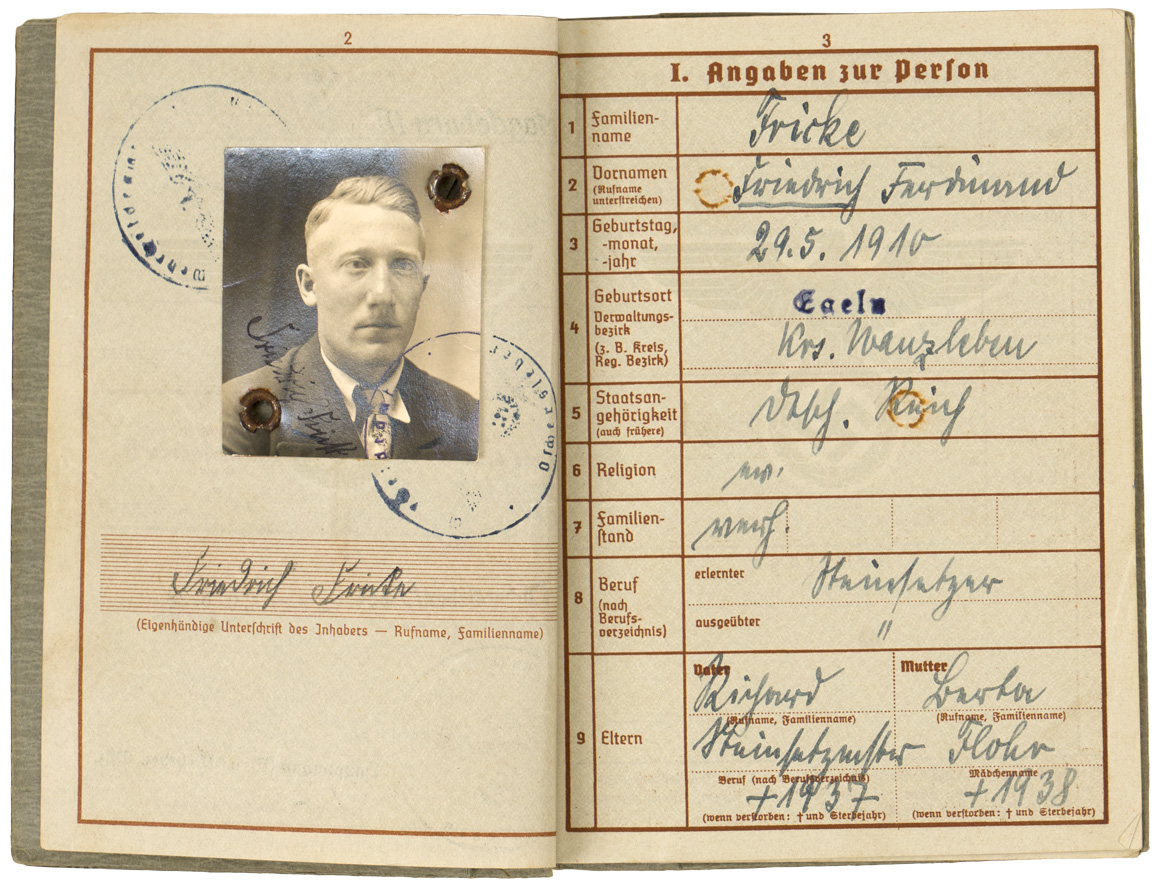 2
Friedrich Fricke
(Eigenhändige Unterschrift des Inhabers — Rufname, Familienname)
3
I. Angaben zur Person
1 Familien-
name
Fricke
2 Vornamen
(Rufname
unterstreichen)
Friedrich Ferdinand
3 Geburtstag,
-monat,
-jahr
29.5. 1910
4 Geburtsort
Verwaltungs-
bezirk
(z. B. Kreis,
Reg. Bezirk)
Egeln
Krs. Wanzleben
5 Staatsan-
gehörigkeit
(auch frühere)
Dtsch. Reich
6 Religion
ev.
7 Familien-
stand
verh.
8 Beruf
(nach
Berufs-
verzeichnis)
erlernter Steinsetzer
ausgeübter "
9 Eltern
Vater
Richard
(Rufname, Familienname)
Steinsetzmstr
Beruf (nach Berufsverzeichnis)
+ 1937
(wenn verstorben: † und Sterbejahr)
Mutter
Berta
(Rufname, Familienname)
Flohr
Mädchenname
+ 1938
(wenn verstorben: † und Sterbejahr)